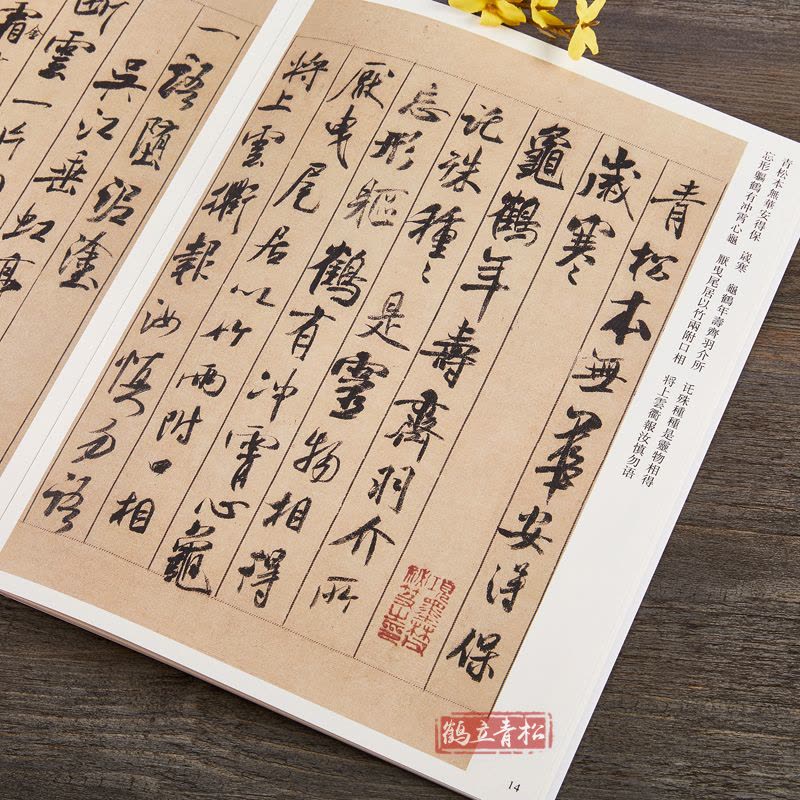 青松本無華安得保
歲寒〻
龜鶴年壽齊羽介所
託殊種〻是靈物相得
忘形軀鶴有冲霄心龜
厭曳尾居以竹兩附口相
将上雲衢報汝慎勿語
一語墮泥塗
吳江垂虹亭
断雲一片
項墨林父
秘笈之印
青松本無華安得保 晟寒 龜鶴年壽齊羽介所 讬殊種種是靈物相得
忘形軀鶴有冲霄心龜 厭曳尾居以竹兩附口相 将上雲衢報汝慎勿语
14
鹤立青松